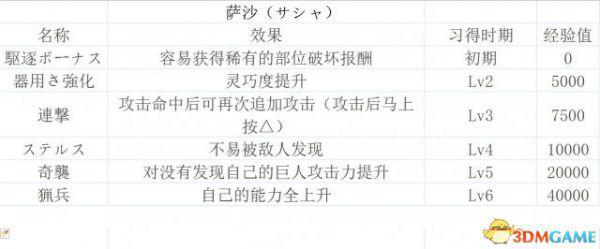 萨沙（サシャ）
名称 效果 习得时期 经验值
駆逐ボーナス 容易获得稀有的部位破坏报酬 初期 0
器用さ強化 灵巧度提升 Lv2 5000
連撃 攻击命中后可再次追加攻击（攻击后马上按△） Lv3 7500
ステルス 不易被敌人发现 Lv4 10000
奇襲 对没有发现自己的巨人攻击力提升 Lv5 20000
猟兵 自己的能力全上升 Lv6 40000
3DMGAME